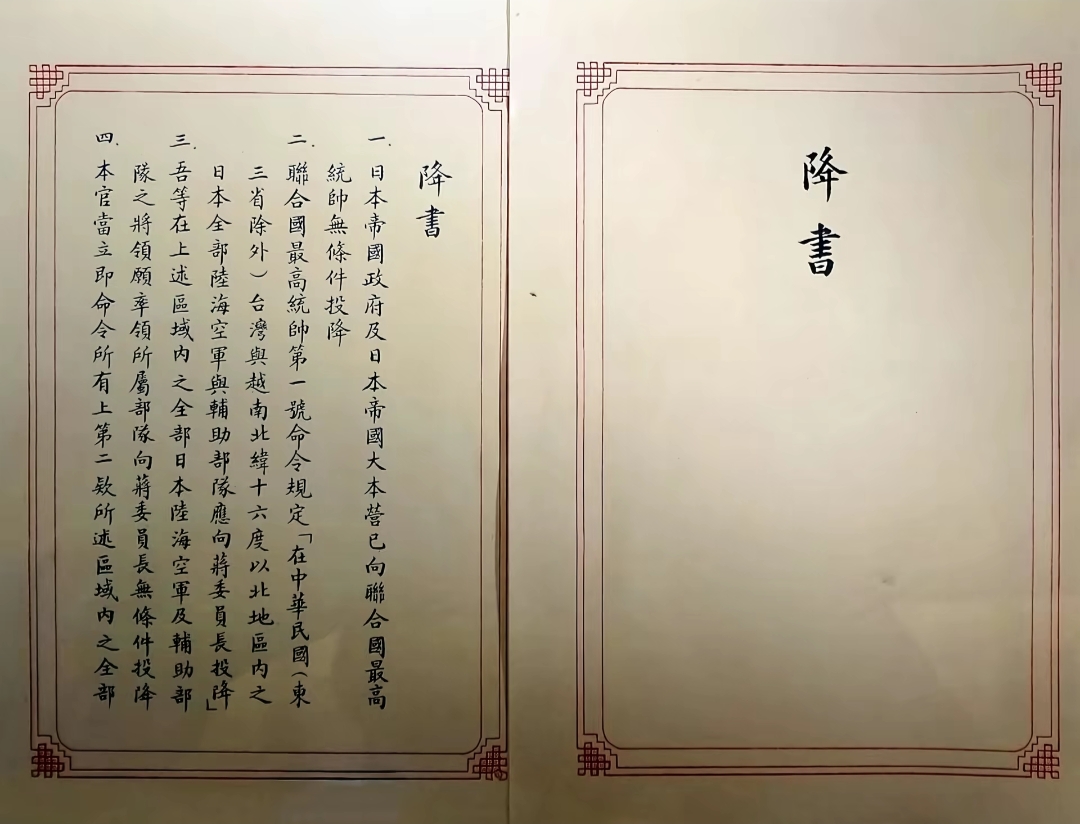 降書
降書
一.日本帝國政府及日本帝國大本營已向聯合國最高
統帥無條件投降
二.聯合國最高統帥第一號命令規定「在中華民國(東
三省除外)台灣與越南北緯十六度以北地區內之
日本全部陸海空軍與輔助部隊應向蔣委員長投降」
三.吾等在上述區域內之全部日本陸海空軍及輔助部
隊之將領願率領所屬部隊向蔣委員長無條件投降
四.本官當立即命令所有上第二欵所述區域內之全部